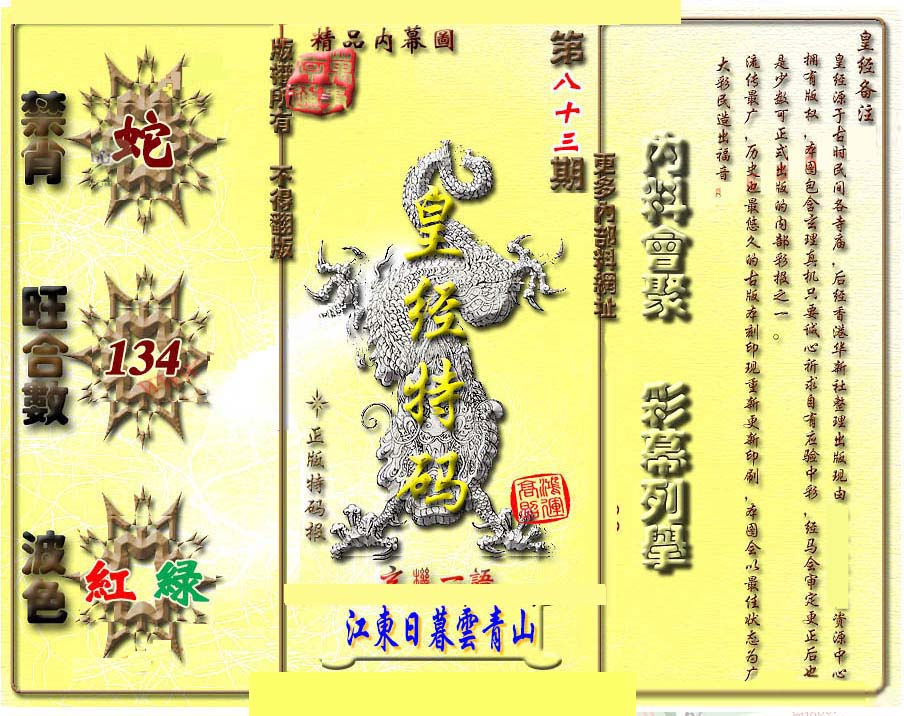 皇经备注
皇经源于古时民间各寺庙，后经香港华新社整理出版现由 资源中心
拥有版权，本图包含玄理真机只要诚心祈求自有应验中彩，经马会审定更正后也
是少数可正式出版的内部彩报之一。
流传最广，历史也最悠久的古版本刻印现重新更新印刷，本图会以最佳状态为广
大彩民造出福音
內料會聚
彩幕列舉
更多內部料網址
第八十三期
精品内幕圖
版權所有 不得翻版
皇经特码
正版特码报
鴻運高照
玄機一語
江東日暮雲青山
禁肖
蛇
旺合數
134
波色
紅 緑